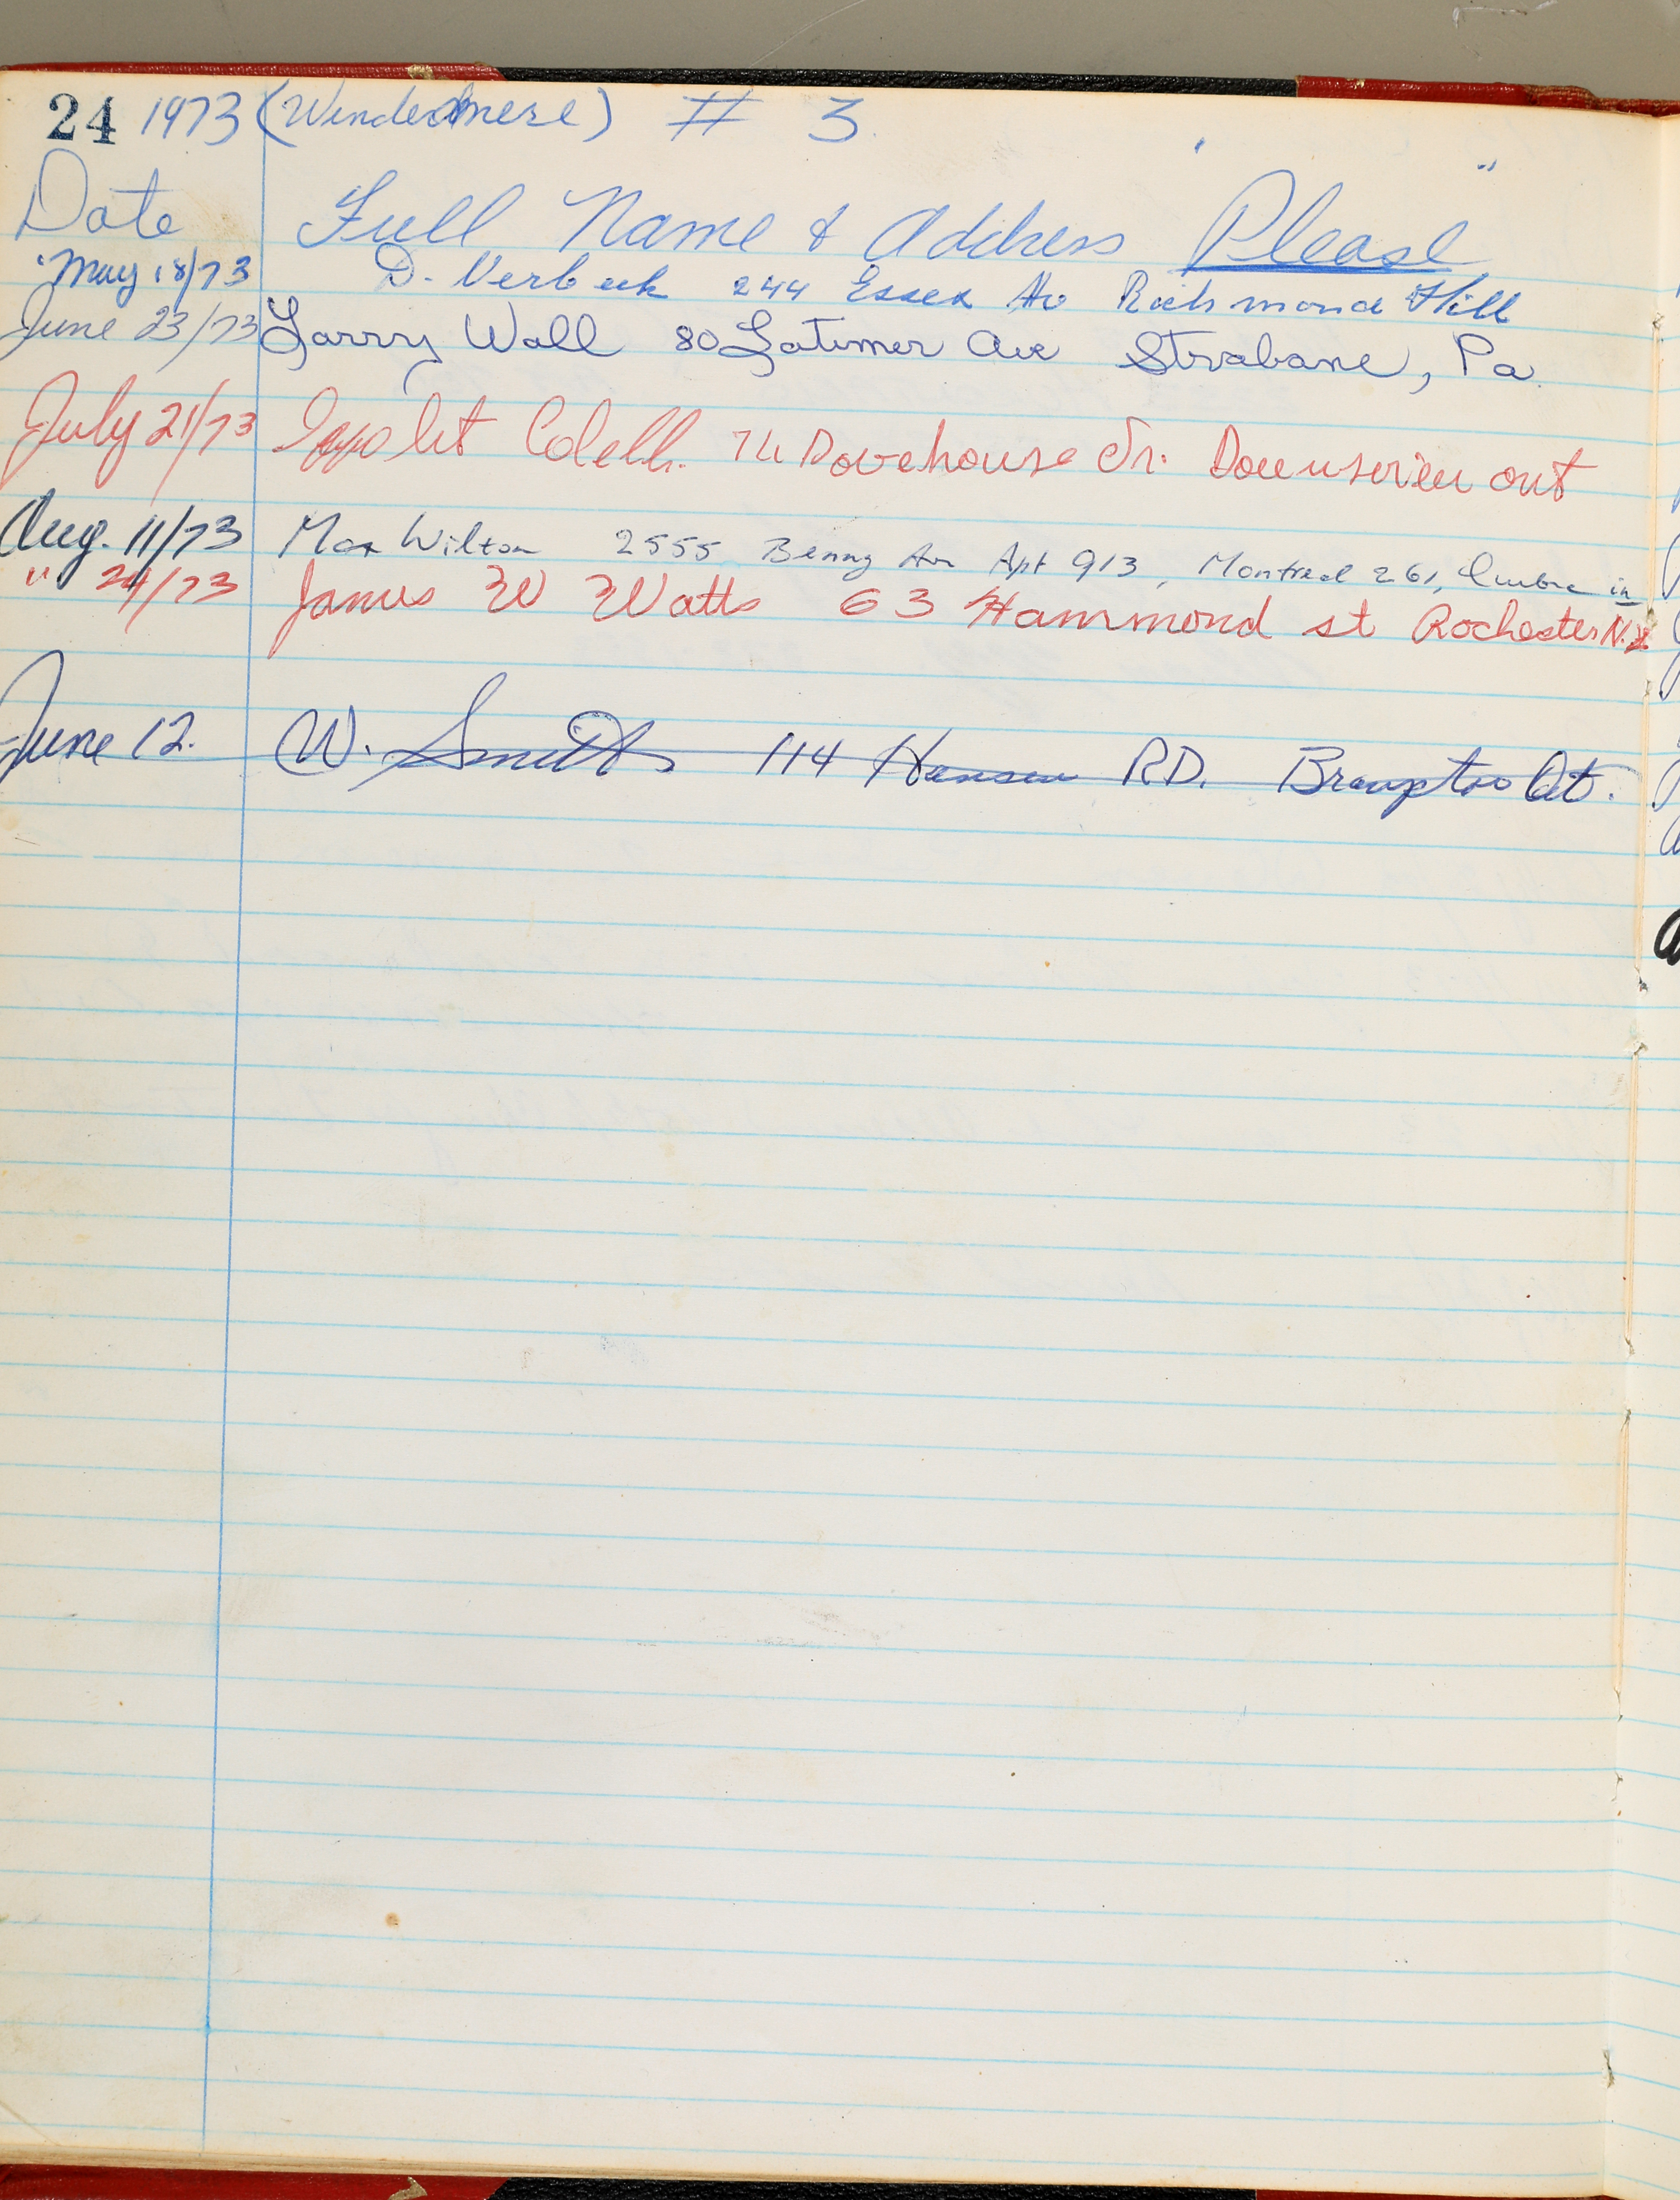 24 1973 (Windermere) # 3
Date Full Name & Address "Please"
May 18/73 D. Verbeek 244 Essex Av Richmond Hill
June 23/73 Larry Wall 80 Latimer Ave Strabane, Pa.
July 21/73 Dovehouse Dr. Downsview ont
Aug. 11/73 Max Wilton 2555 Benny Av Apt 913, Montreal 261, Quebec
" 24/73 James W Watts 63 Hammond st Rochester N.Y.
June 12. W. Smith 114 Hansen RD. Brampton Ont.